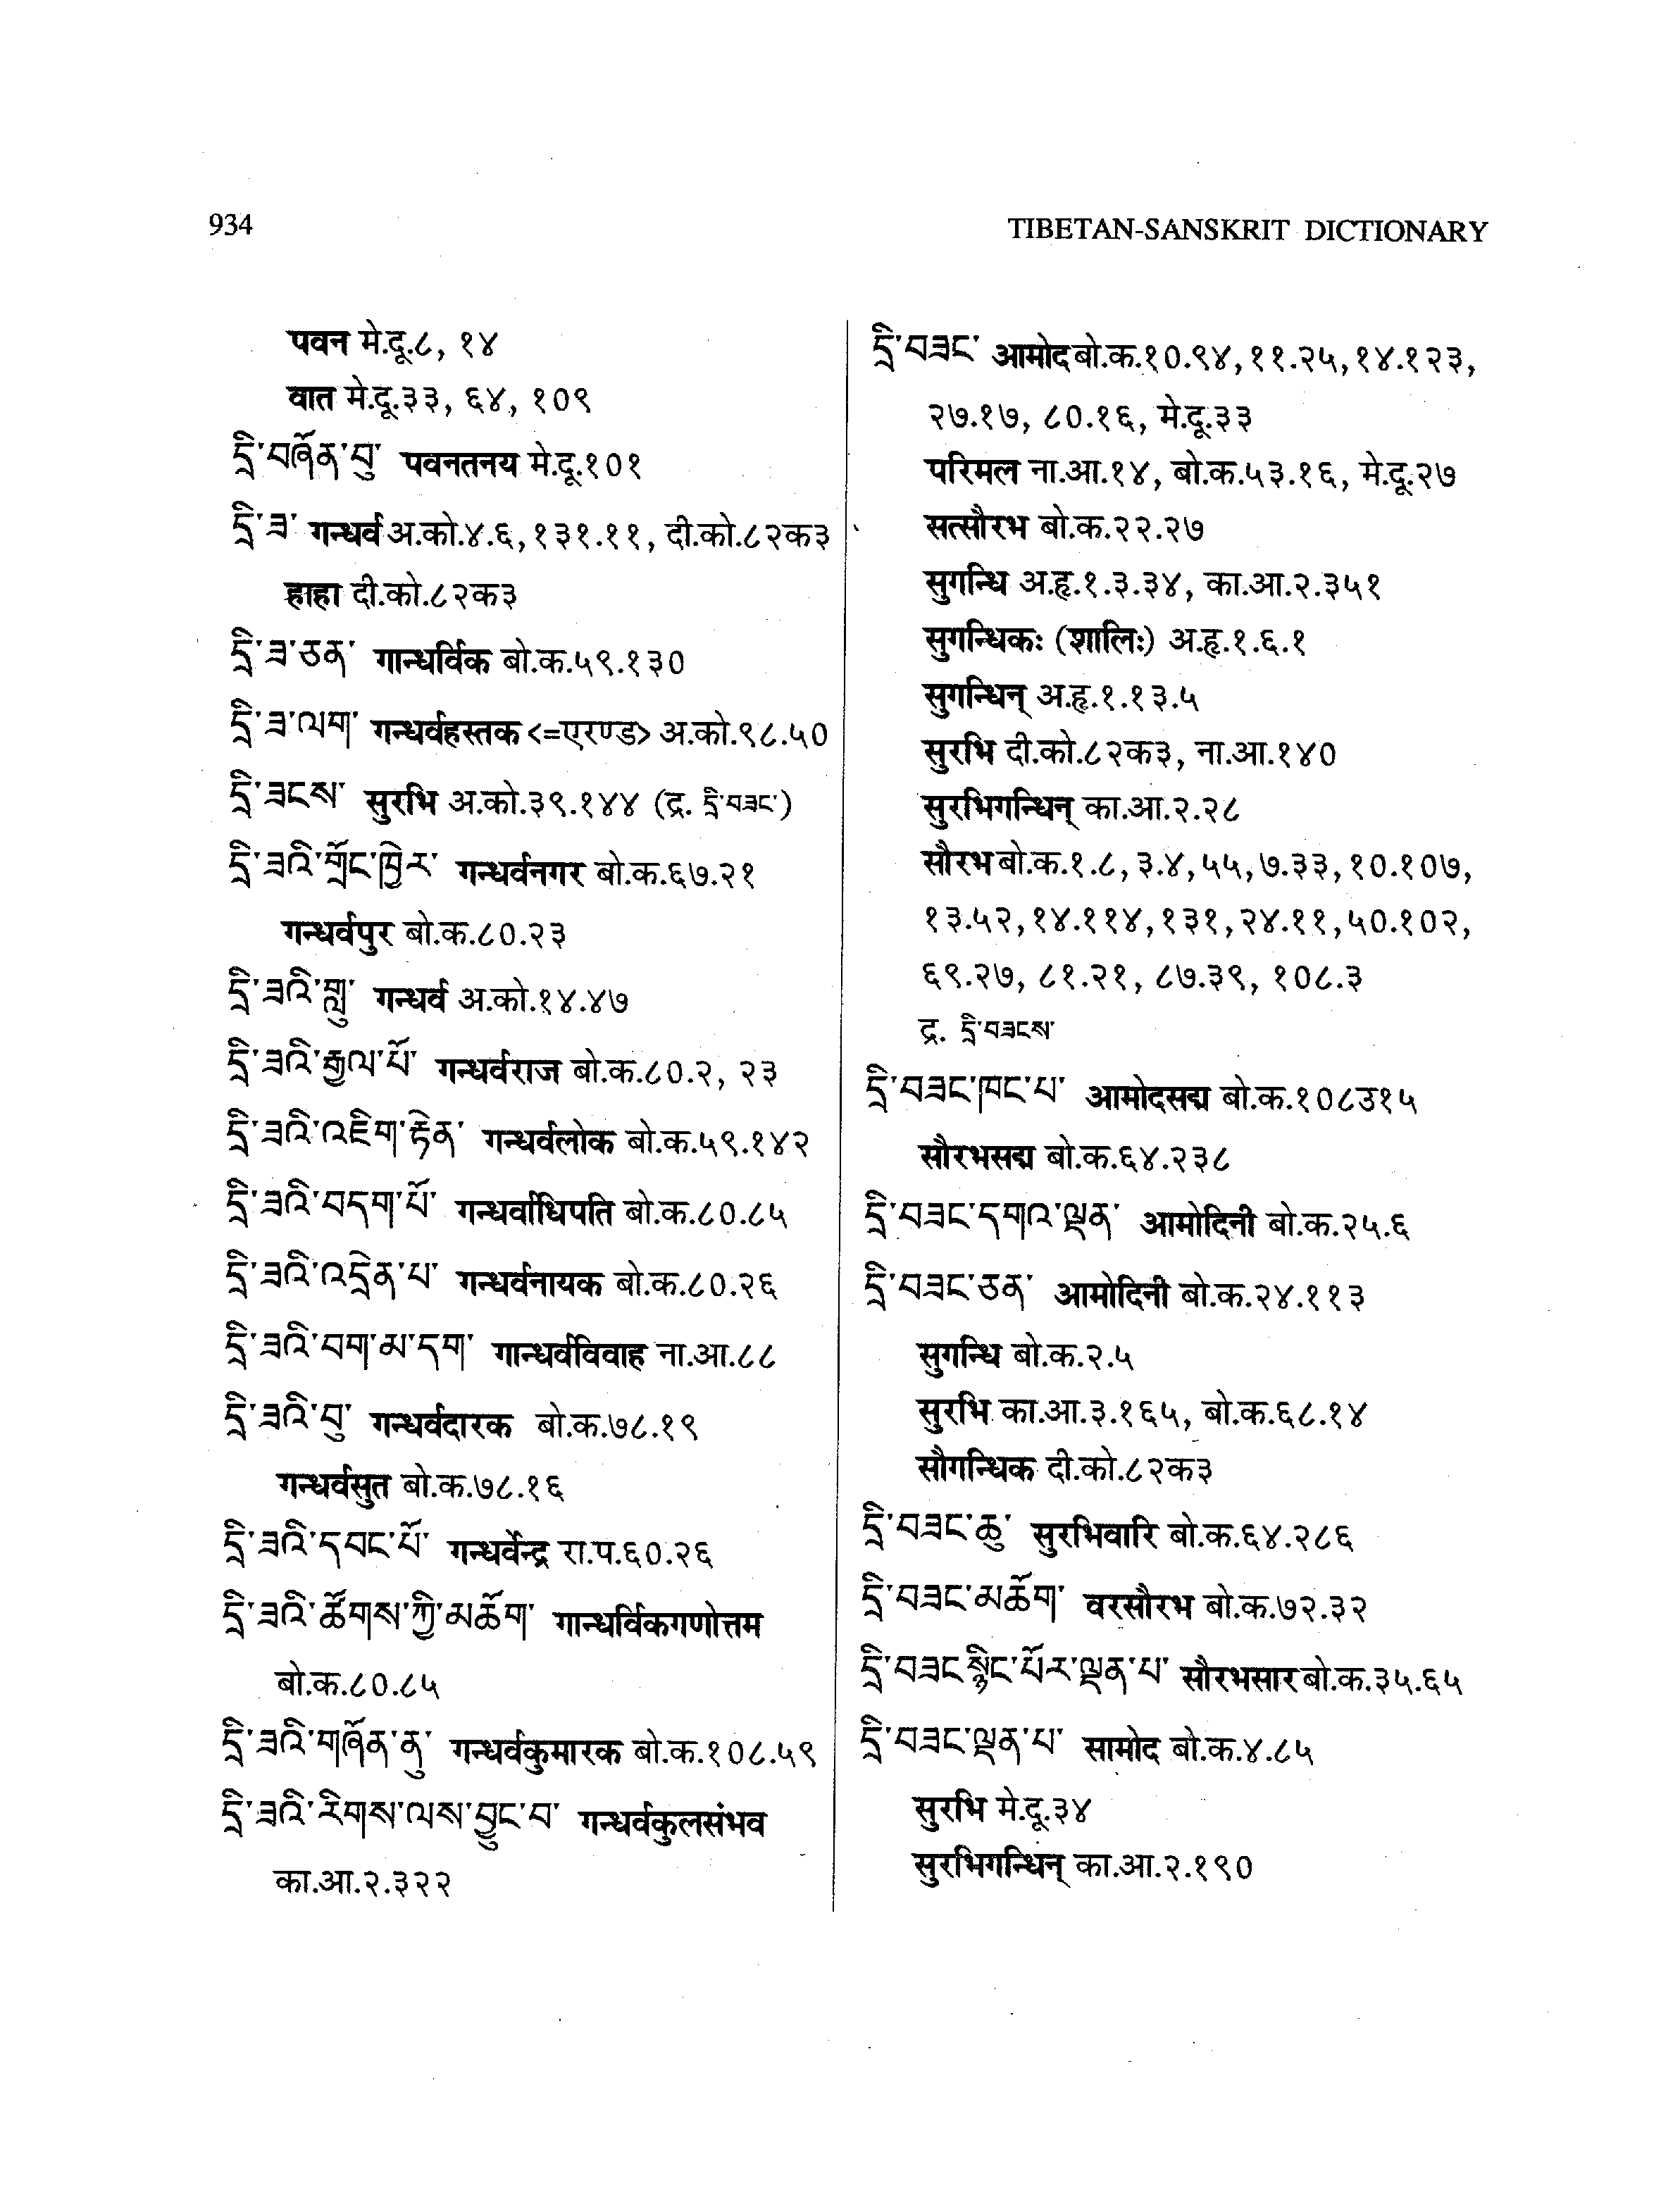 934
TIBETAN-SANSKRIT DICTIONARY
पवन मे.दू.८, १४
वात मे.दू.३३, ६४, १०९
དྲི་བཞོན་བུ་ पवनतनय मे.दू.१०१
དྲི་ཟ་ गन्धर्व अ.को.४.६, १३१.११, दी.को.८२क३
हाहा दी.को.८२क३
དྲི་ཟ་ཅན་ गान्धर्विक बो.क.५९.१३०
དྲི་ཟ་ལག་ गन्धर्वहस्तक <=एरण्ड> अ.को.९८.५०
དྲི་ཟངས་ सुरभि अ.को.३९.१४४ (द्र. དྲི་བཟང་)
དྲི་ཟའི་གྲོང་ཁྱེར་ गन्धर्वनगर बो.क.६७.२१
गन्धर्वपुर बो.क.८०.२३
དྲི་ཟའི་གླུ་ गन्धर्व अ.को.१४.४७
དྲི་ཟའི་རྒྱལ་པོ་ गन्धर्वराज बो.क.८०.२, २३
དྲི་ཟའི་འཇིག་རྟེན་ गन्धर्वलोक बो.क.५९.१४२
དྲི་ཟའི་བདག་པོ་ गन्धर्वाधिपति बो.क.८०.८५
དྲི་ཟའི་འདྲེན་པ་ गन्धर्वनायक बो.क.८०.२६
དྲི་ཟའི་བག་མ་དག་ गान्धर्वविवाह ना.आ.८८
དྲི་ཟའི་བུ་ गन्धर्वदारक बो.क.७८.१९
गन्धर्वसुत बो.क.७८.१६
དྲི་ཟའི་དབང་པོ་ गन्धर्वेन्द्र रा.प.६०.२६
དྲི་ཟའི་ཚོགས་ཀྱི་མཆོག་ गान्धर्विकगणोत्तम
बो.क.८०.८५
དྲི་ཟའི་གཞོན་ནུ་ गन्धर्वकुमारक बो.क.१०८.५९
དྲི་ཟའི་རིགས་ལས་བྱུང་བ་ गन्धर्वकुलसंभव
का.आ.२.३२२
དྲི་བཟང་ आमोद बो.क.१०.९४, ११.२५, १४.१२३,
२७.१७, ८०.१६, मे.दू.३३
परिमल ना.आ.१४, बो.क.५३.१६, मे.दू.२७
सत्सौरभ बो.क.२२.२७
सुगन्धि अ.हृ.१.३.३४, का.आ.२.३५१
सुगन्धिकः (शालिः) अ.हृ.१.६.१
सुगन्धिन् अ.हृ.१.१३.५
सुरभि दी.को.८२क३, ना.आ.१४०
सुरभिगन्धिन् का.आ.२.२८
सौरभ बो.क.१.८, ३.४, ५५, ७.३३, १०.१०७,
१३.५२, १४.११४, १३१, २४.११, ५०.१०२,
६९.२७, ८१.२१, ८७.३९, १०८.३
द्र. དྲི་བཟངས་
དྲི་བཟང་ཁང་པ་ आमोदसद्म बो.क.१०८उ१५
सौरभसद्म बो.क.६४.२३८
དྲི་བཟང་དགའ་ལྡན་ आमोदिनी बो.क.२५.६
དྲི་བཟང་ཅན་ आमोदिनी बो.क.२४.११३
सुगन्धि बो.क.२.५
सुरभि का.आ.३.१६५, बो.क.६८.१४
सौगन्धिक दी.को.८२क३
དྲི་བཟང་ཆུ་ सुरभिवारि बो.क.६४.२८६
དྲི་བཟང་མཆོག་ वरसौरभ बो.क.७२.३२
དྲི་བཟང་སྙིང་པོར་ལྡན་པ་ सौरभसार बो.क.३५.६५
དྲི་བཟང་ལྡན་པ་ सामोद बो.क.४.८५
सुरभि मे.दू.३४
सुरभिगन्धिन् का.आ.२.१९०